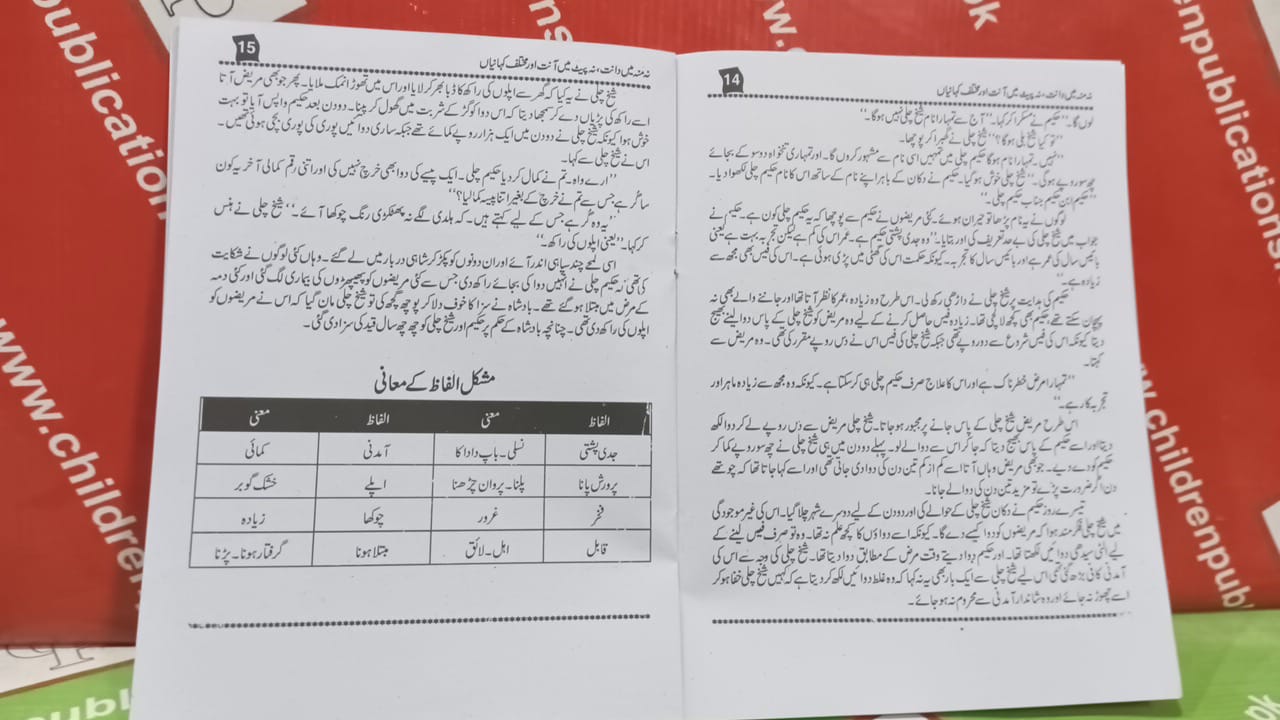 14
نہ منہ میں دانت، نہ پیٹ میں آنت اور مختلف کہانیاں
لوں گا۔‘‘ حکیم نے مسکرا کر کہا۔ ’’آج سے تمہارا نام شیخ چلی نہیں ہوگا۔‘‘
’’تو کیا شیخ بلی ہوگا؟‘‘ شیخ چلی نے گھبرا کر پوچھا۔
’’نہیں۔ تمہارا نام ہوگا حکیم چلی میں تمہیں اسی نام سے مشہور کروں گا۔ اور تمہاری تنخواہ دو سو کے بجائے
چھ سو روپے ہوگی۔‘‘ شیخ چلی خوش ہوگیا۔ حکیم نے دکان کے باہر اپنے نام کے ساتھ اس کا نام حکیم چلی لکھوا دیا۔
’’حکیم ابن حکیم جناب حکیم چلی۔‘‘
لوگوں نے یہ نام پڑھا تو حیران ہوئے۔ کئی مریضوں نے حکیم سے پوچھا کہ یہ حکیم چلی کون ہے۔ حکیم نے
جواب میں شیخ چلی کی بے حد تعریف کی اور بتایا۔ ’’وہ جدی پشتی حکیم ہے۔ عمر اس کی کم ہے لیکن تجربہ بہت ہے یعنی
بائیس سال کی عمر ہے اور بائیس سال کا تجربہ۔ کیونکہ حکمت اس کی گھٹی میں پڑی ہوئی ہے۔ اس کی فیس بھی مجھ سے
زیادہ ہے۔‘‘
حکیم کی ہدایت پر شیخ چلی نے داڑھی رکھ لی۔ اس طرح وہ زیادہ عمر کا نظر آتا تھا اور جاننے والے بھی نہ
پہچان سکتے تھے، حکیم بھی کچھ لالچی تھا۔ زیادہ فیس حاصل کرنے کے لیے وہ مریض کو شیخ چلی کے پاس دوا لینے بھیج
دیتا کیونکہ اس کی فیس شروع سے دو روپے تھی جبکہ شیخ چلی کی فیس اس نے دس روپے مقرر کی تھی۔ وہ مریض سے
کہتا۔
’’تمہارا مرض خطرناک ہے اور اس کا علاج صرف حکیم چلی ہی کر سکتا ہے۔ کیونکہ وہ مجھ سے زیادہ ماہر اور
تجربہ کار ہے۔‘‘
اس طرح مریض شیخ چلی کے پاس جانے پر مجبور ہو جاتا۔ شیخ چلی مریض سے دس روپے لے کر دوا لکھ
دیتا اور اسے حکیم کے پاس بھیج دیتا کہ جا کر اس سے دوا لے لو۔ پہلے دو دن میں ہی شیخ چلی نے چھ سو روپے کما کر
حکیم کو دے دیے۔ جو بھی مریض وہاں آتا اسے کم از کم تین دن کی دوا دی جاتی تھی اور اسے کہا جاتا تھا کہ چوتھے
دن اگر ضرورت پڑے تو مزید تین دن کی دوا لے جانا۔
تیسرے روز حکیم نے دکان شیخ چلی کے حوالے کی اور دو دن کے لیے دوسرے شہر چلا گیا۔ اس کی غیر موجودگی
میں شیخ چلی فکر مند ہوا کہ مریضوں کو دوا کیسے دے گا۔ کیونکہ اسے دواؤں کا کچھ علم نہ تھا۔ وہ تو صرف فیس لینے کے
لیے الٹی سیدھی دوائیں لکھتا تھا۔ اور حکیم دوا دیتے وقت مرض کے مطابق دوا دیتا تھا۔ شیخ چلی کی وجہ سے اس کی
آمدنی کافی بڑھ گئی تھی اس لیے شیخ چلی سے ایک بار بھی یہ نہ کہا کہ وہ غلط دوائیں لکھ کر دیتا ہے کہ کہیں شیخ چلی خفا ہو کر
اسے چھوڑ نہ جائے اور وہ شاندار آمدنی سے محروم نہ ہو جائے۔
15
نہ منہ میں دانت، نہ پیٹ میں آنت اور مختلف کہانیاں
شیخ چلی نے یہ کیا کہ گھر سے اپلوں کی راکھ کا ڈبا بھر کر لایا اور اس میں تھوڑا نمک ملایا۔ پھر جو بھی مریض آتا
اسے راکھ کی پڑیاں دے کر سمجھا دیتا کہ اس دوا کو گڑ کے شربت میں گھول کر پینا۔ دو دن بعد حکیم واپس آیا تو بہت
خوش ہوا کیونکہ شیخ چلی نے دو دن میں ایک ہزار روپے کمائے تھے جبکہ ساری دوائیں پوری کی پوری بچی ہوئی تھیں۔
اس نے شیخ چلی سے کہا۔
’’ارے واہ۔ تم نے کمال کر دیا حکیم چلی۔ ایک پیسے کی دوا بھی خرچ نہیں کی اور اتنی رقم کمائی آخر یہ کون
سا گر ہے جس سے تم نے خرچ کے بغیر اتنا پیسہ کمالیا؟‘‘
’’یہ وہ گر ہے جس کے لیے کہتے ہیں۔ کہ ہلدی لگے نہ پھٹکڑی رنگ چوکھا آئے۔‘‘ شیخ چلی نے ہنس
کر کہا۔ ’’یعنی اپلوں کی راکھ۔‘‘
اسی لمحے چند سپاہی اندر آئے اور ان دونوں کو پکڑ کر شاہی دربار میں لے گئے۔ وہاں کئی لوگوں نے شکایت
کی تھی کہ حکیم چلی نے انہیں دوا کی بجائے راکھ دی جس سے کئی مریضوں کو پھیپھڑوں کی بیماری لگ گئی اور کئی دمہ
کے مرض میں مبتلا ہو گئے تھے۔ بادشاہ نے سزا کا خوف دلا کر پوچھ گچھ کی تو شیخ چلی مان گیا کہ اس نے مریضوں کو
اپلوں کی راکھ دی تھی۔ چنانچہ بادشاہ کے حکم پر حکیم اور شیخ چلی کو چھ چھ سال قید کی سزا دی گئی۔
مشکل الفاظ کے معانی
الفاظ معنی الفاظ معنی
جدی پشتی نسلی۔ باپ دادا کا آمدنی کمائی
پرورش پانا پلنا۔ پروان چڑھنا اپلے خشک گوبر
فخر غرور چوکھا زیادہ
قابل اہل۔ لائق مبتلا ہونا گرفتار ہونا۔ پڑنا
publication
www.children
www.childrenpubl
enpublication
ok